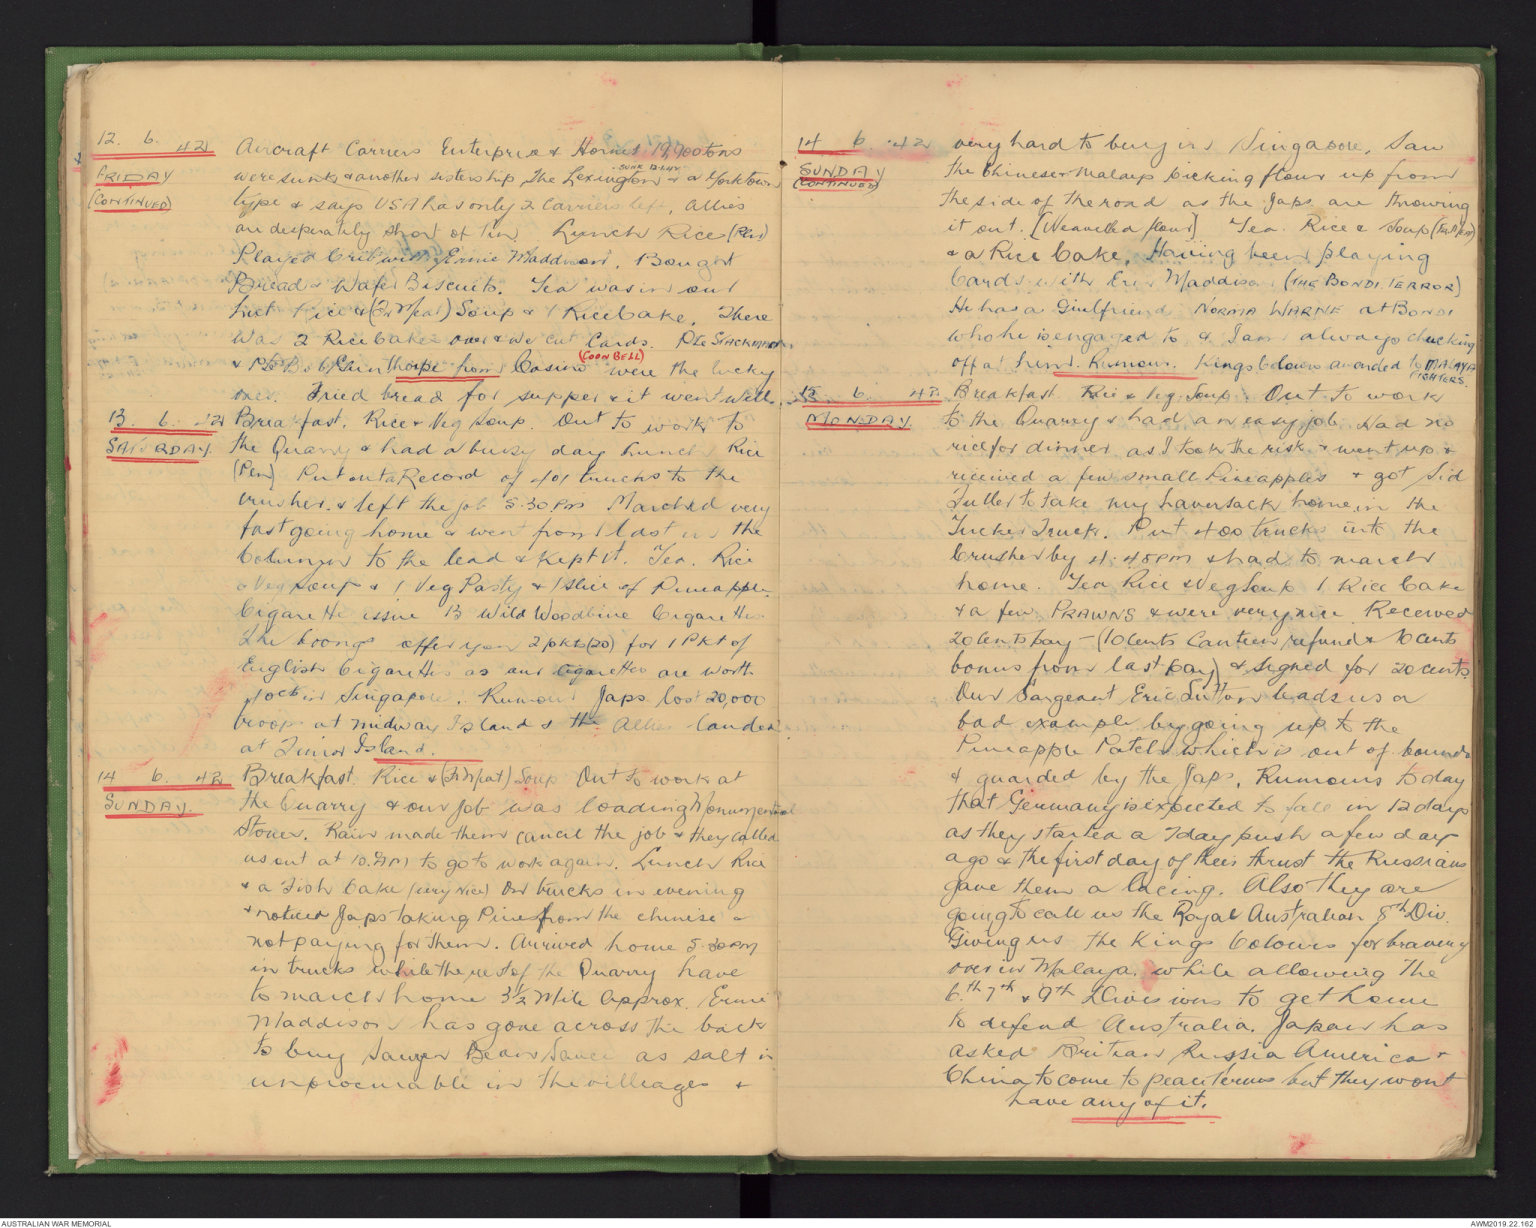 12. 6. 42
FRIDAY
(CONTINUED)
Aircraft Carriers Enterprise & Hornet 19,900 tons
were sunk & another sistership, The Lexington & a Yorktown
SUNK 12.1.42
type & says USA has only 2 Carriers left. Allies
are desperately short of tin. Lunch Rice (Plain)
Played Crib with Ernie Maddison. Bought
Bread & Wafer Biscuits. Tea was in our
hut Rice & (On Meat) Soup & 1 Rice Cake. There
was 2 Rice Cakes over & we cut Cards. Pte Stackman
(COON BELL)
& Pte Bob Plainthorpe from Casino were the lucky
ones. Fried bread for supper & it went well.
13. 6. 42
SATURDAY
Breakfast. Rice & Veg Soup. Out to work to
the Quarry & had a busy day Lunch Rice
(Plain) Put out a Record of 401 trucks to the
crusher & left the job 5.30 PM Marched very
fast going home & went from last in the
Column to the lead & kept it. Tea. Rice
& Veg Soup & 1 Veg Pasty & 1 Slice of Pineapple.
Cigarette issue 13 Wild Woodbine Cigarettes
The boongs offer you 2 pkts (20) for 1 Pkt of
English Cigarettes as our cigarettes are worth
70c in Singapore. Rumour Japs lost 20,000
troops at Midway Island & the Allies landed
at Timor Island.
14 6. 42
SUNDAY.
Breakfast Rice & Soup Out to work at
the Quarry & our job was loading Monumental
Stones. Rain made them cancil the job & they called
us out at 10. AM to go to work again. Lunch Rice
& a Fish Cake (very nice) On trucks in evening
& noticed Japs taking Pines from the chinese &
not paying for them. Arrived home 5.30 PM
in trucks while the rest of the Quarry have
to march home 3½ Mile Approx. Ernie
Maddison has gone across the back
to buy Sawyer Bean Sauce as salt is
unprocurable in the villeages &
14 6. 42
SUNDAY
(CONTINUED)
very hard to buy in Singapore. Saw
the Chinese & Malays Picking flour up from
the side of the road as the Japs are throwing
it out. [Weavelled flour] Tea. Rice & Soup
& a Rice Cake. Having been playing
Cards with Ern Maddison (THE BONDI TERROR)
He has a Girlfriend NORMA WARNE at BONDI
who he is engaged to & I am always chucking
off at him. Rumour. Kings Colours awarded to MALAYA
FIGHTERS.
15 6. 42
MONDAY.
Breakfast Rice & Veg Soup. Out to work
to the Quarry & had an easy job. Had no
rice for dinner as I took the risk & went up &
received a few small Pineapples & got Sid
Tuller to take my haversack home in the
Tucker Truck. Put 400 trucks into the
Crusher by 4.45 PM & had to march
home. Tea Rice & Veg Soup 1 Rice Cake
& a few PRAWNS & were very nice. Received
20 cents pay - (10 cents Canteen refund & 10 cents
bonus from last pay) & signed for 20 cents.
Our Sargeant Eric Sutton leads us a
bad example by going up to the
Pineapple Patch which is out of bounds
& guarded by the Japs. Rumours today
that Germany is expected to fall in 12 days
as they started a 7 day push a few days
ago & the first day of their thrust the Russians
gave them a lacing. Also they are
going to call us the Royal Australian 8th Div.
Giving us the Kings Colours for bravery
over in Malaya. While allowing The
6th 7th & 9th Divisions to get home
to defend Australia. Japan has
asked Britian Russia America &
China to come to peace terms but they wont
have any of it.
AUSTRALIAN WAR MEMORIAL
AWM2019.22.162